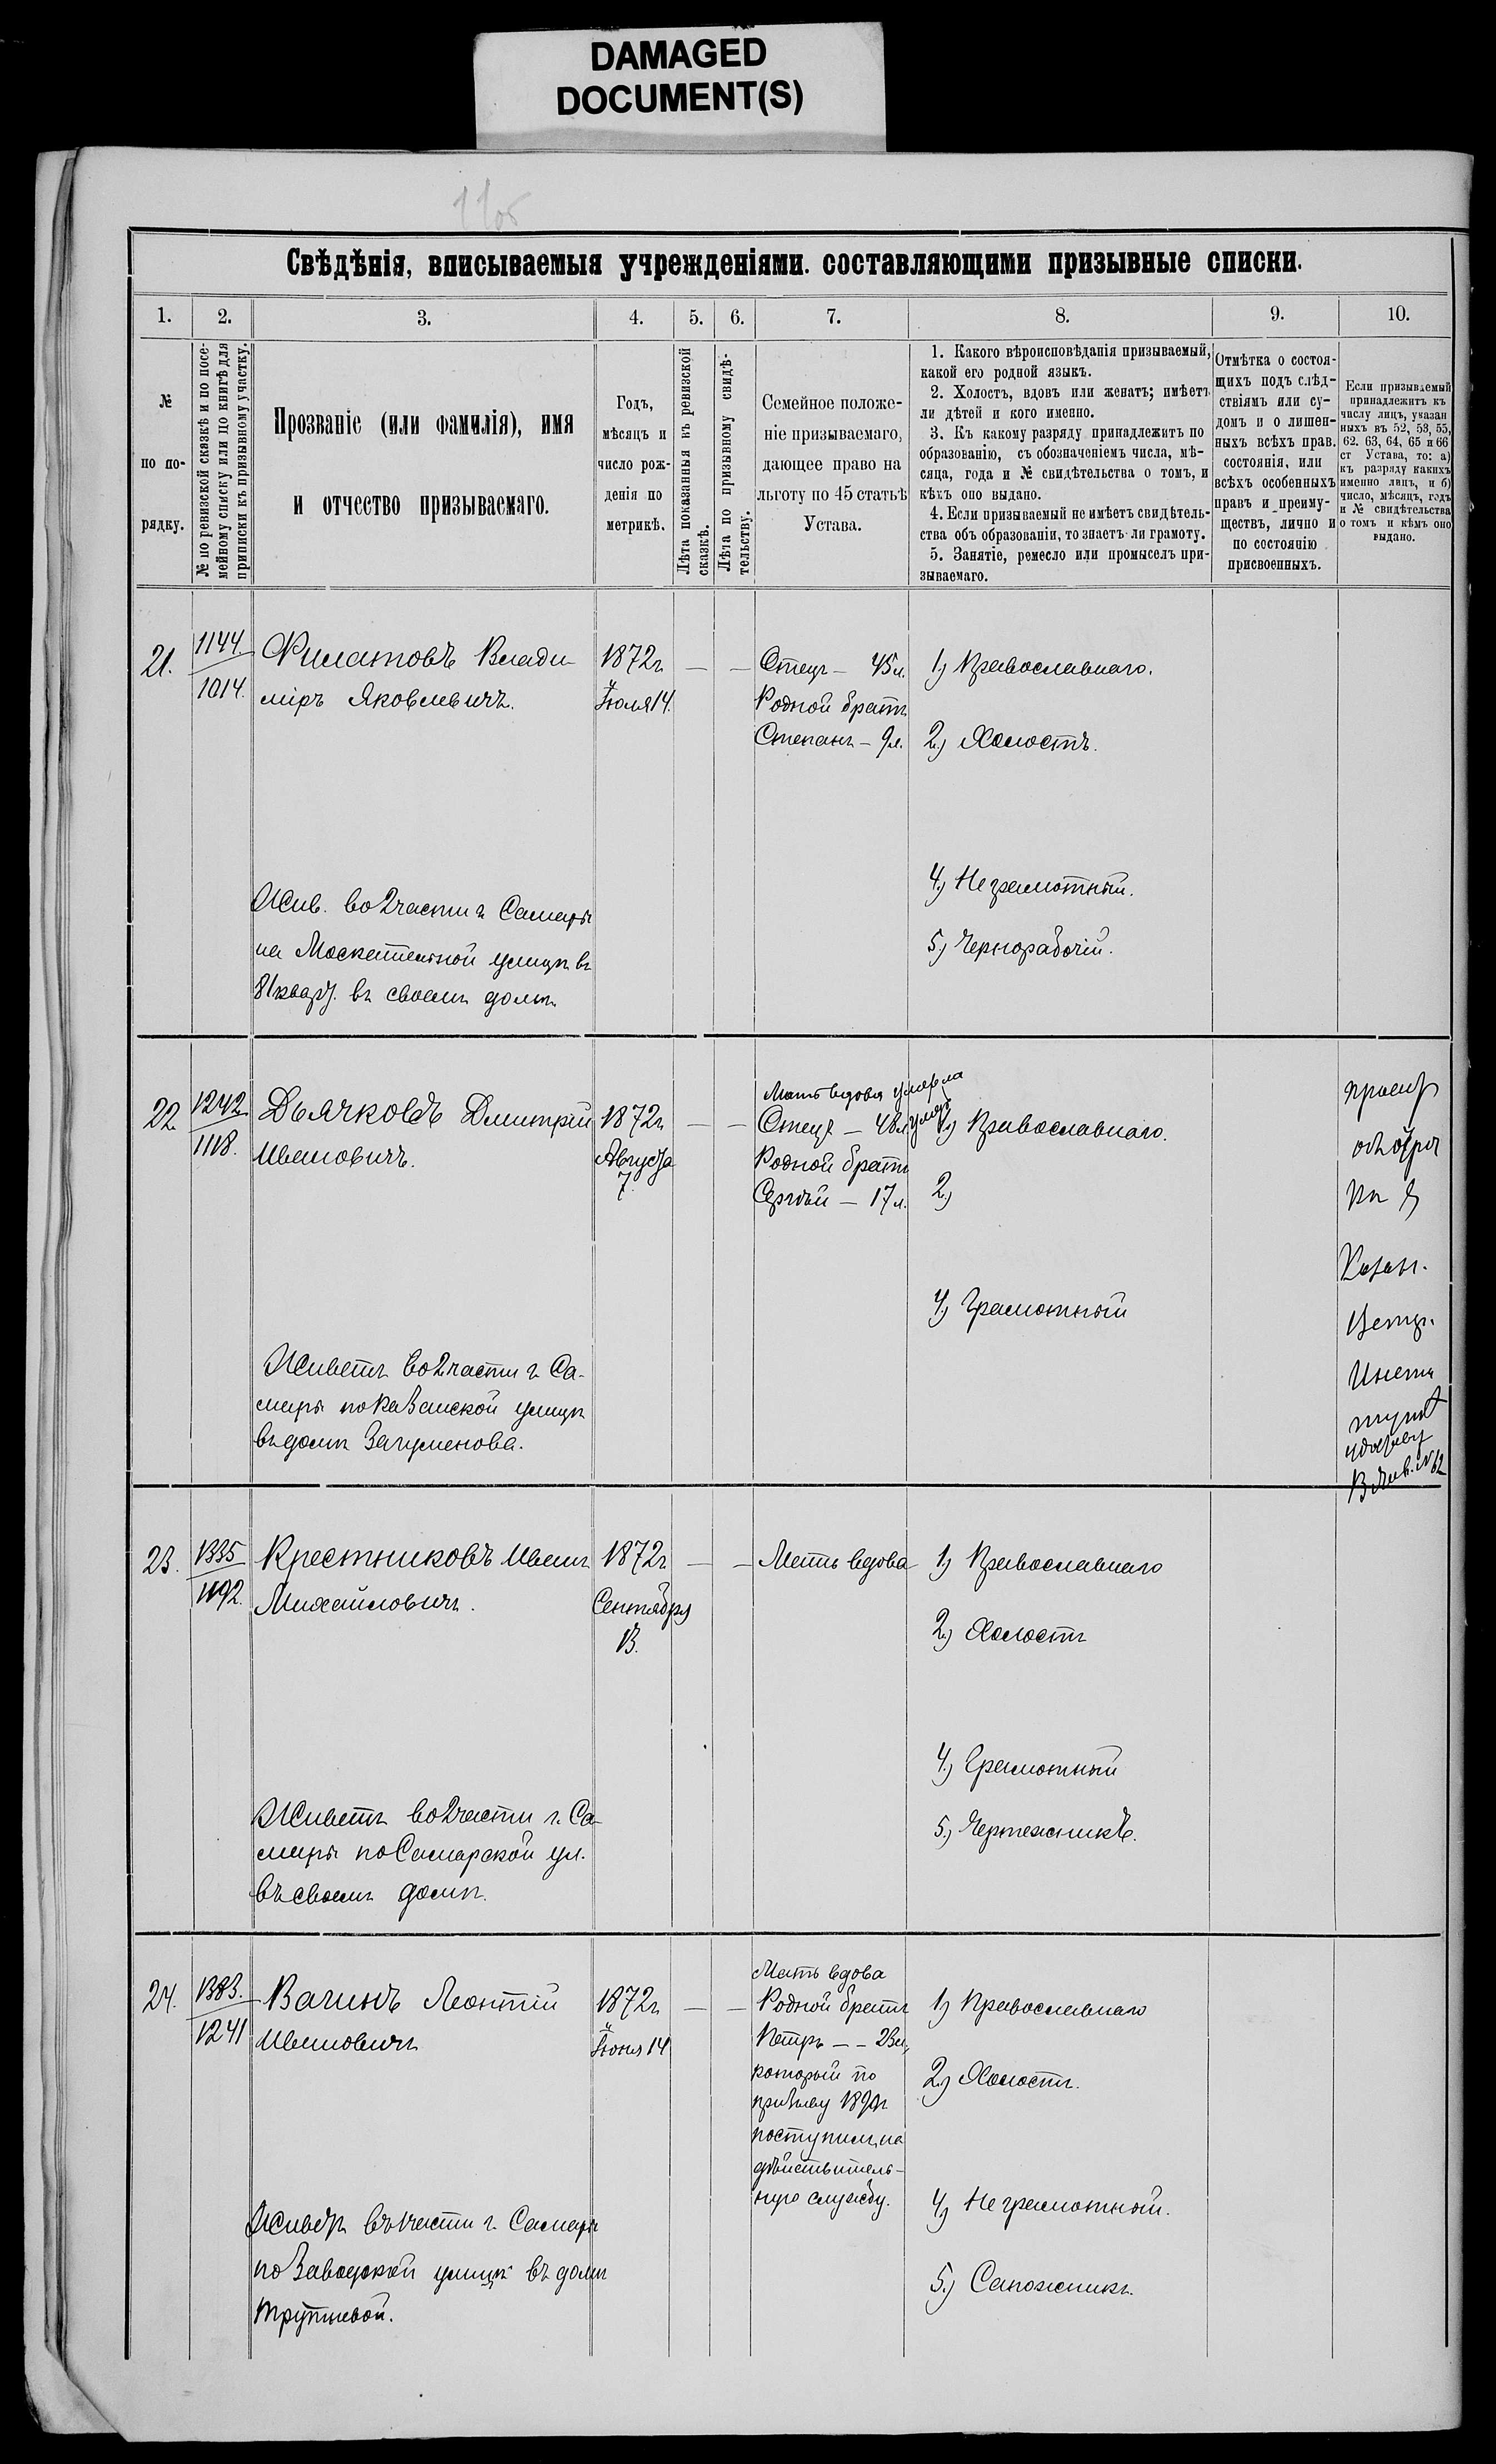 DAMAGED
DOCUMENT(S)
11об
Свѣдѣнія, вписываемыя учрежденіями. составляющими призывные списки.
1. 2. 3. 4. 5. 6. 7. 8. 9. 10.
№
по по-
рядку.
№ по ревизской сказкѣ и по посе-
мейному списку или по книгѣ для
приписки къ призывному участку.
Прозваніе (или фамилія), имя
и отчество призываемаго.
Годъ,
мѣсяцъ и
число рож-
денія по
метрикѣ.
Лѣта показанныя въ ревизской
сказкѣ.
Лѣта по призывному свидѣ-
тельству.
Семейное положе-
ніе призываемаго,
дающее право на
льготу по 45 статьѣ
Устава.
1. Какого вѣроисповѣданія призываемый,
какой его родной языкъ.
2. Холостъ, вдовъ или женатъ; имѣетъ
ли дѣтей и кого именно.
3. Къ какому разряду принадлежитъ по
образованію, съ обозначеніемъ числа, мѣ-
сяца, года и № свидѣтельства о томъ, и
кѣмъ оно выдано.
4. Если призываемый не имѣетъ свидѣтель-
ства объ образованіи, то знаетъ ли грамоту.
5. Занятіе, ремесло или промыселъ при-
зываемаго.
Отмѣтка о состоя-
щихъ подъ слѣд-
ствіямъ или су-
домъ и о лишен-
ныхъ всѣхъ прав.
состоянія, или
всѣхъ особенныхъ
правъ и преиму-
ществъ, лично и
по состоянію
присвоенныхъ.
Если призываемый
принадлежитъ къ
числу лицъ, указан
ныхъ въ 52, 53, 55,
62. 63, 64, 65 и 66
ст Устава, то: а)
къ разряду какихъ
именно лицъ, и б)
число, мѣсяцъ, годъ
и № свидѣтельства
о томъ и кѣмъ оно
выдано.
21.
1144.
1014.
Филатовъ Влади-
міръ Яковлевичъ.
1872г.
Іюля 14.
—
—
Отецъ — 45л.
Родной братъ
Степанъ — 9л.
1) Православнаго.
2) Холостъ.
4) Неграмотный.
5) Чернорабочій.
Жив. во 2 части г. Самары
на Москательной улицѣ въ
81 кварт. въ своемъ домѣ.
22.
1242
1118.
Дьячковъ Дмитрій
Ивановичъ.
1872г.
Августа
7.
—
—
Мать вдова умерла
Отецъ — 48л. умеръ
Родной братъ
Сергѣй — 17л.
1) Православнаго.
2)
4) Грамотный
Живетъ во 2 части г. Са-
мары по Казанской улицѣ
въ домѣ Загуменова.
Казан.
Инсти
23.
1335
1192.
Крестниковъ Иванъ
Михайловичъ.
1872г.
Сентября
13.
—
—
Мать вдова
1) Православнаго
2) Холостъ
4) Грамотный
5) Чертежникъ.
Живетъ во 2 части г. Са-
мары по Самарской ул.
въ своемъ домѣ.
24.
1383.
1241
Вагинъ Леонтій
Ивановичъ
1872г.
Іюня 14
—
—
Мать вдова
Родной братъ
Петръ — — 23л,
который по
призыву
поступилъ на
дѣйствитель-
ную службу.
1) Православнаго
2) Холостъ.
4) Неграмотный.
5) Сапожникъ.
Живетъ въ 1 части г. Самары
по Заводской улицѣ въ домѣ